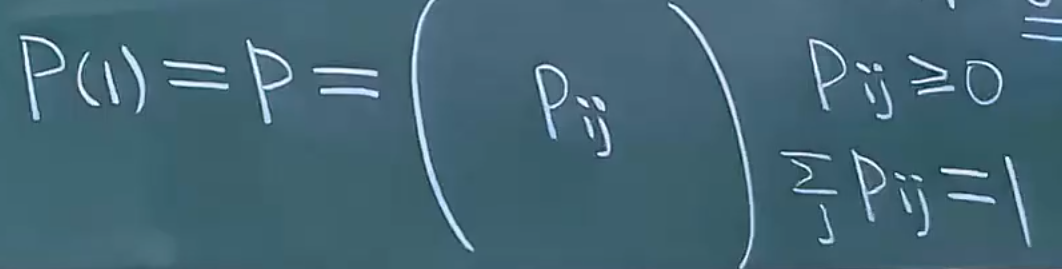 P(1) = P = ( Pij ) Pij ≥ 0
∑j Pij = 1